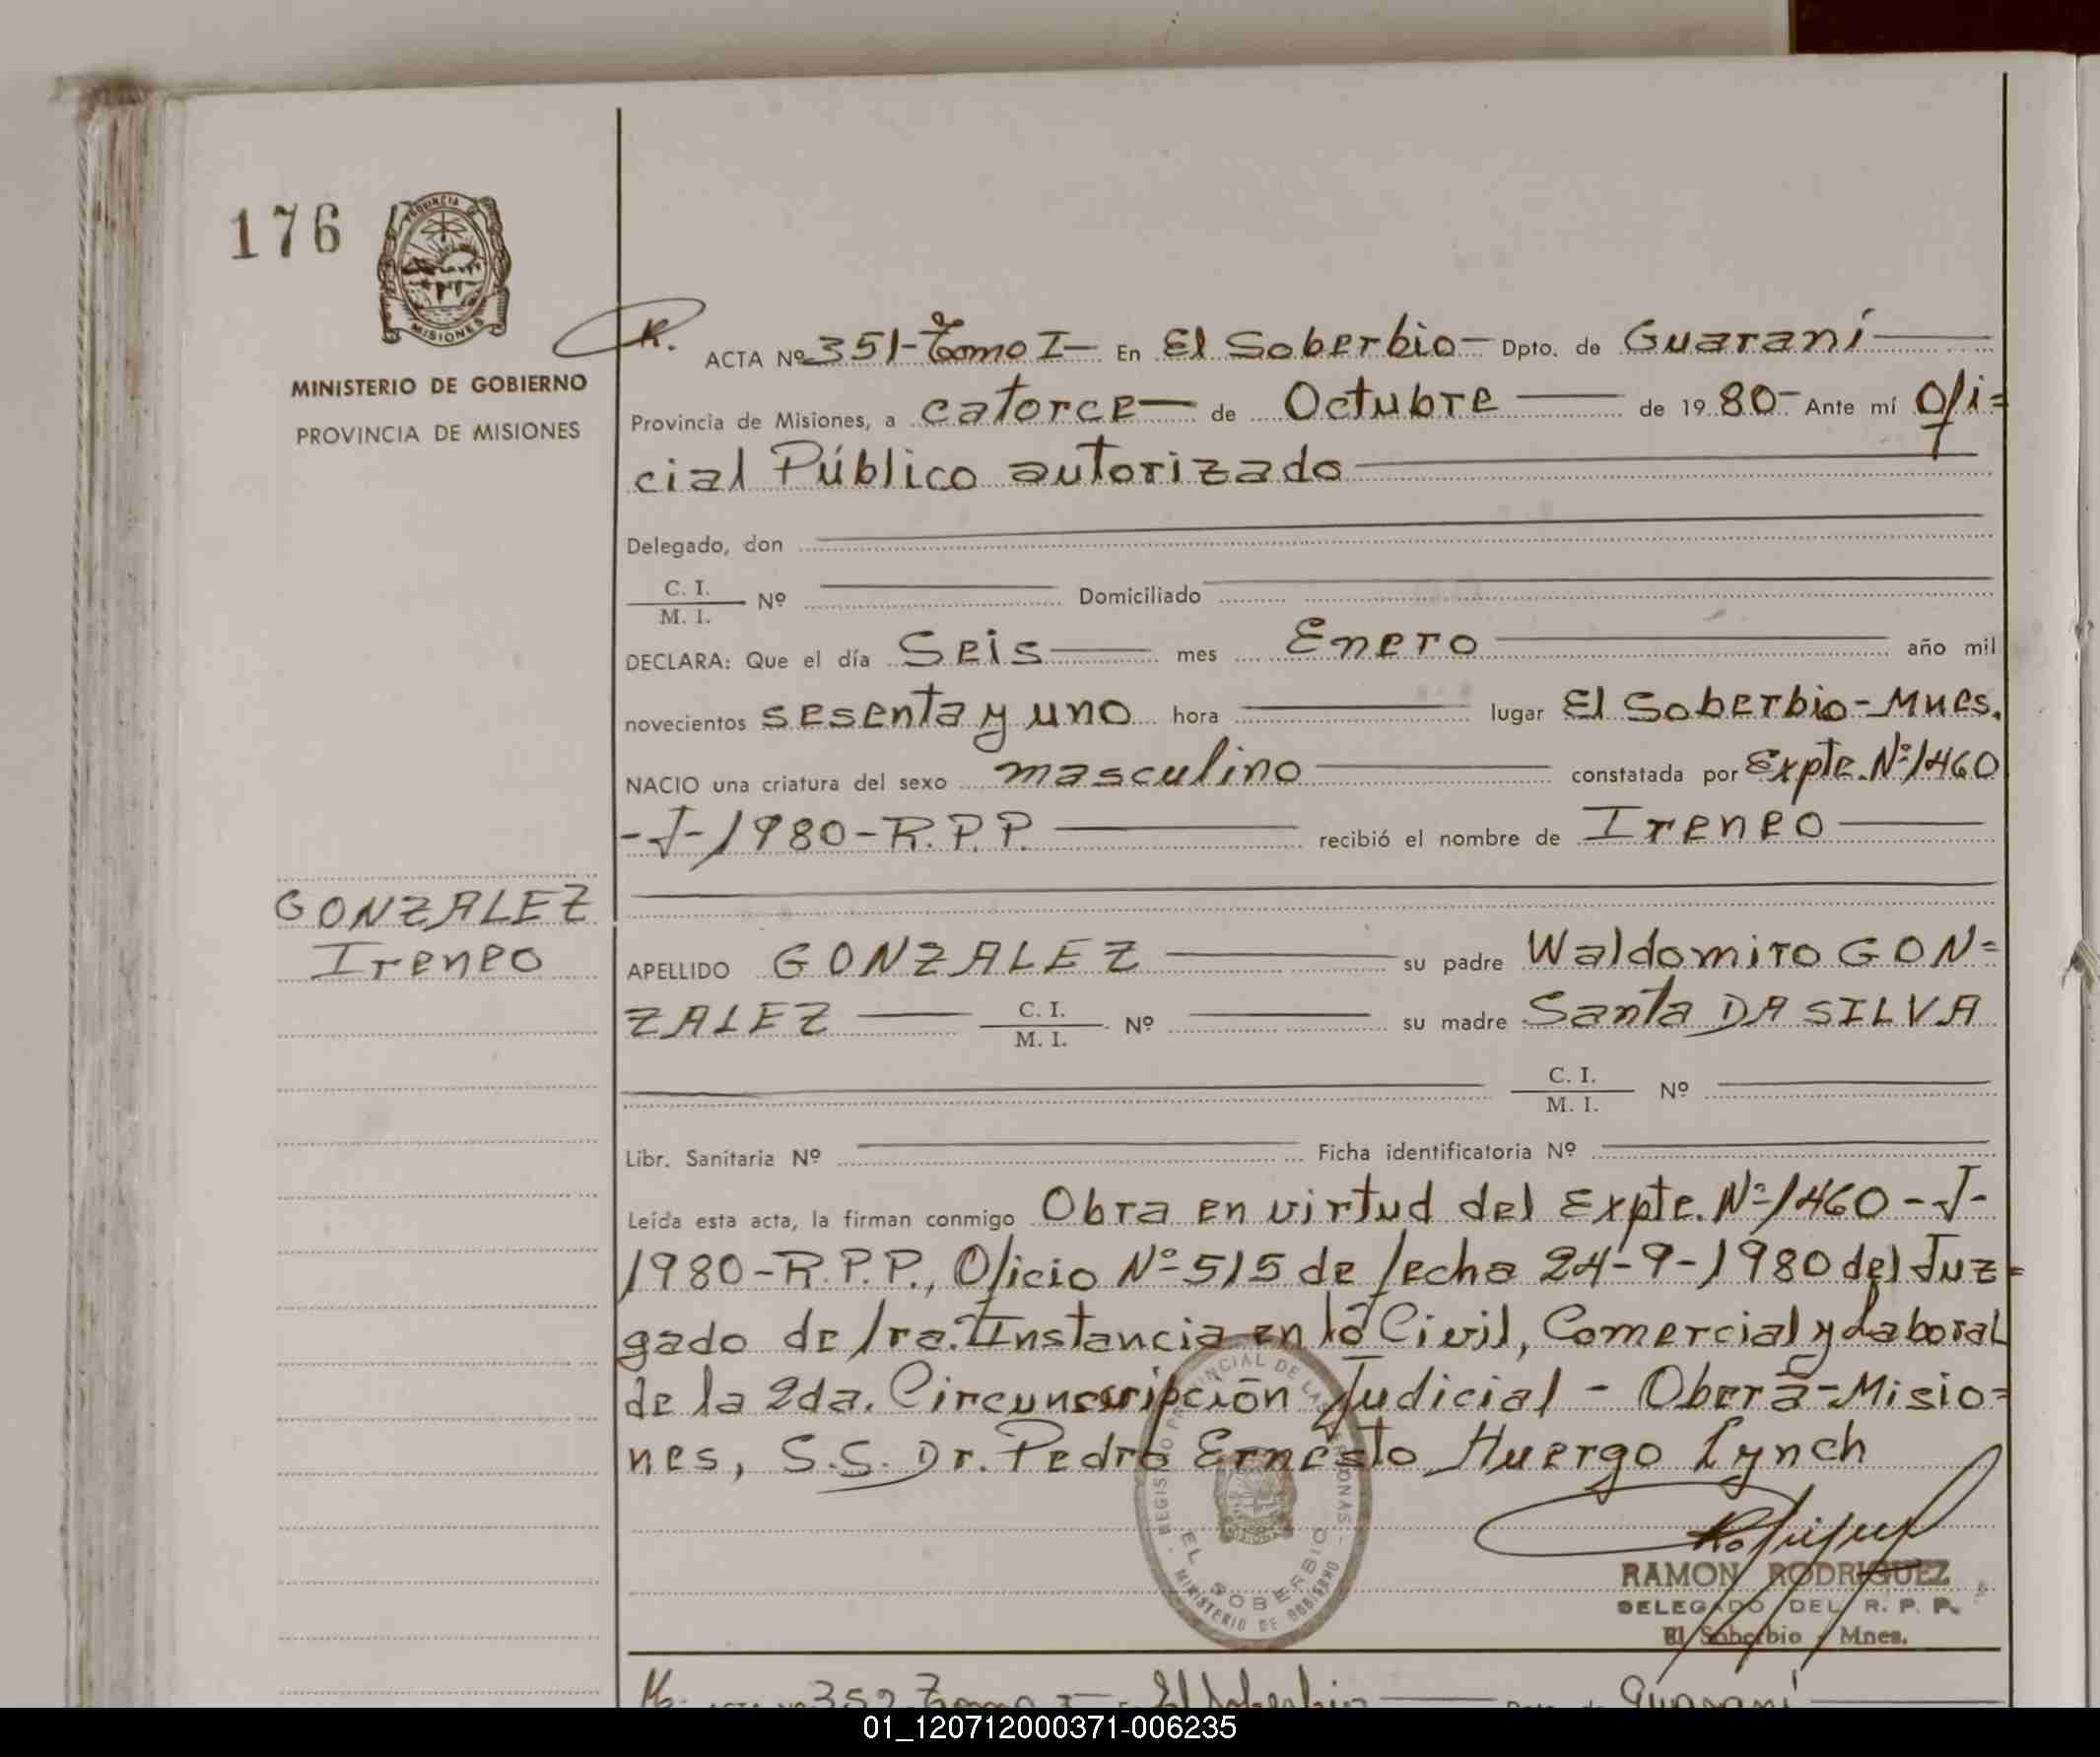 176
PROVINCIA DE
MISIONES
MINISTERIO DE GOBIERNO
PROVINCIA DE MISIONES
GONZALEZ
Ireneo
R. ACTA Nº 351-Tomo I- En El Soberbio- Dpto. de Guaraní
Provincia de Misiones, a catorce de Octubre de 1980- Ante mí Ofi=
cial Público autorizado
Delegado, don
C. I.
M. I. Nº Domiciliado
DECLARA: Que el día Seis mes Enero año mil
novecientos sesenta y uno hora lugar El Soberbio-Mnes.
NACIO una criatura del sexo masculino constatada por Expte. Nº 1460
-J-1980-R.P.P. recibió el nombre de Ireneo
APELLIDO GONZALEZ su padre Waldomiro GON=
ZALEZ C. I. M. I. Nº su madre Santa DA SILVA
C. I.
M. I. Nº
Libr. Sanitaria Nº Ficha identificatoria Nº
Leída esta acta, la firman conmigo Obra en virtud del Expte. Nº 1460-J-
1980-R.P.P., Oficio Nº 515 de fecha 24-9-1980 del Juz=
gado de 1ra. Instancia en lo Civil, Comercial y Laboral
de la 2da. Circunscripción Judicial - Oberá-Misio=
nes, S.S. Dr. Pedro Ernesto Huergo Lynch
REGISTRO PROVINCIAL DE LAS PERSONAS
EL SOBERBIO
MINISTERIO DE GOBIERNO
RAMON RODRIGUEZ
DELEGADO DEL R. P. P.
El Soberbio - Mnes.
352 Tomo I El Soberbio Guaraní
01_120712000371-006235